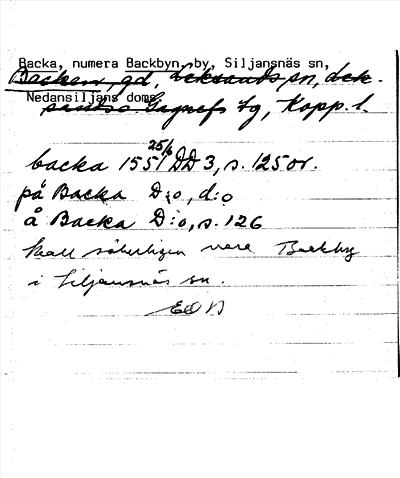 Backa, numera Backbyn, by, Siljansnäs sn,
Backen, gd, Leksands sn, Lek-
Nedansiljans doms
sands o. Gagnefs tg, Kopp. l.
25/6
backa 1551 DD 3, s. 125 or.
på Backa D:o, d:o
å Backa D:o, s. 126
Skall säkerligen vara Backby
i Siljansnäs sn.